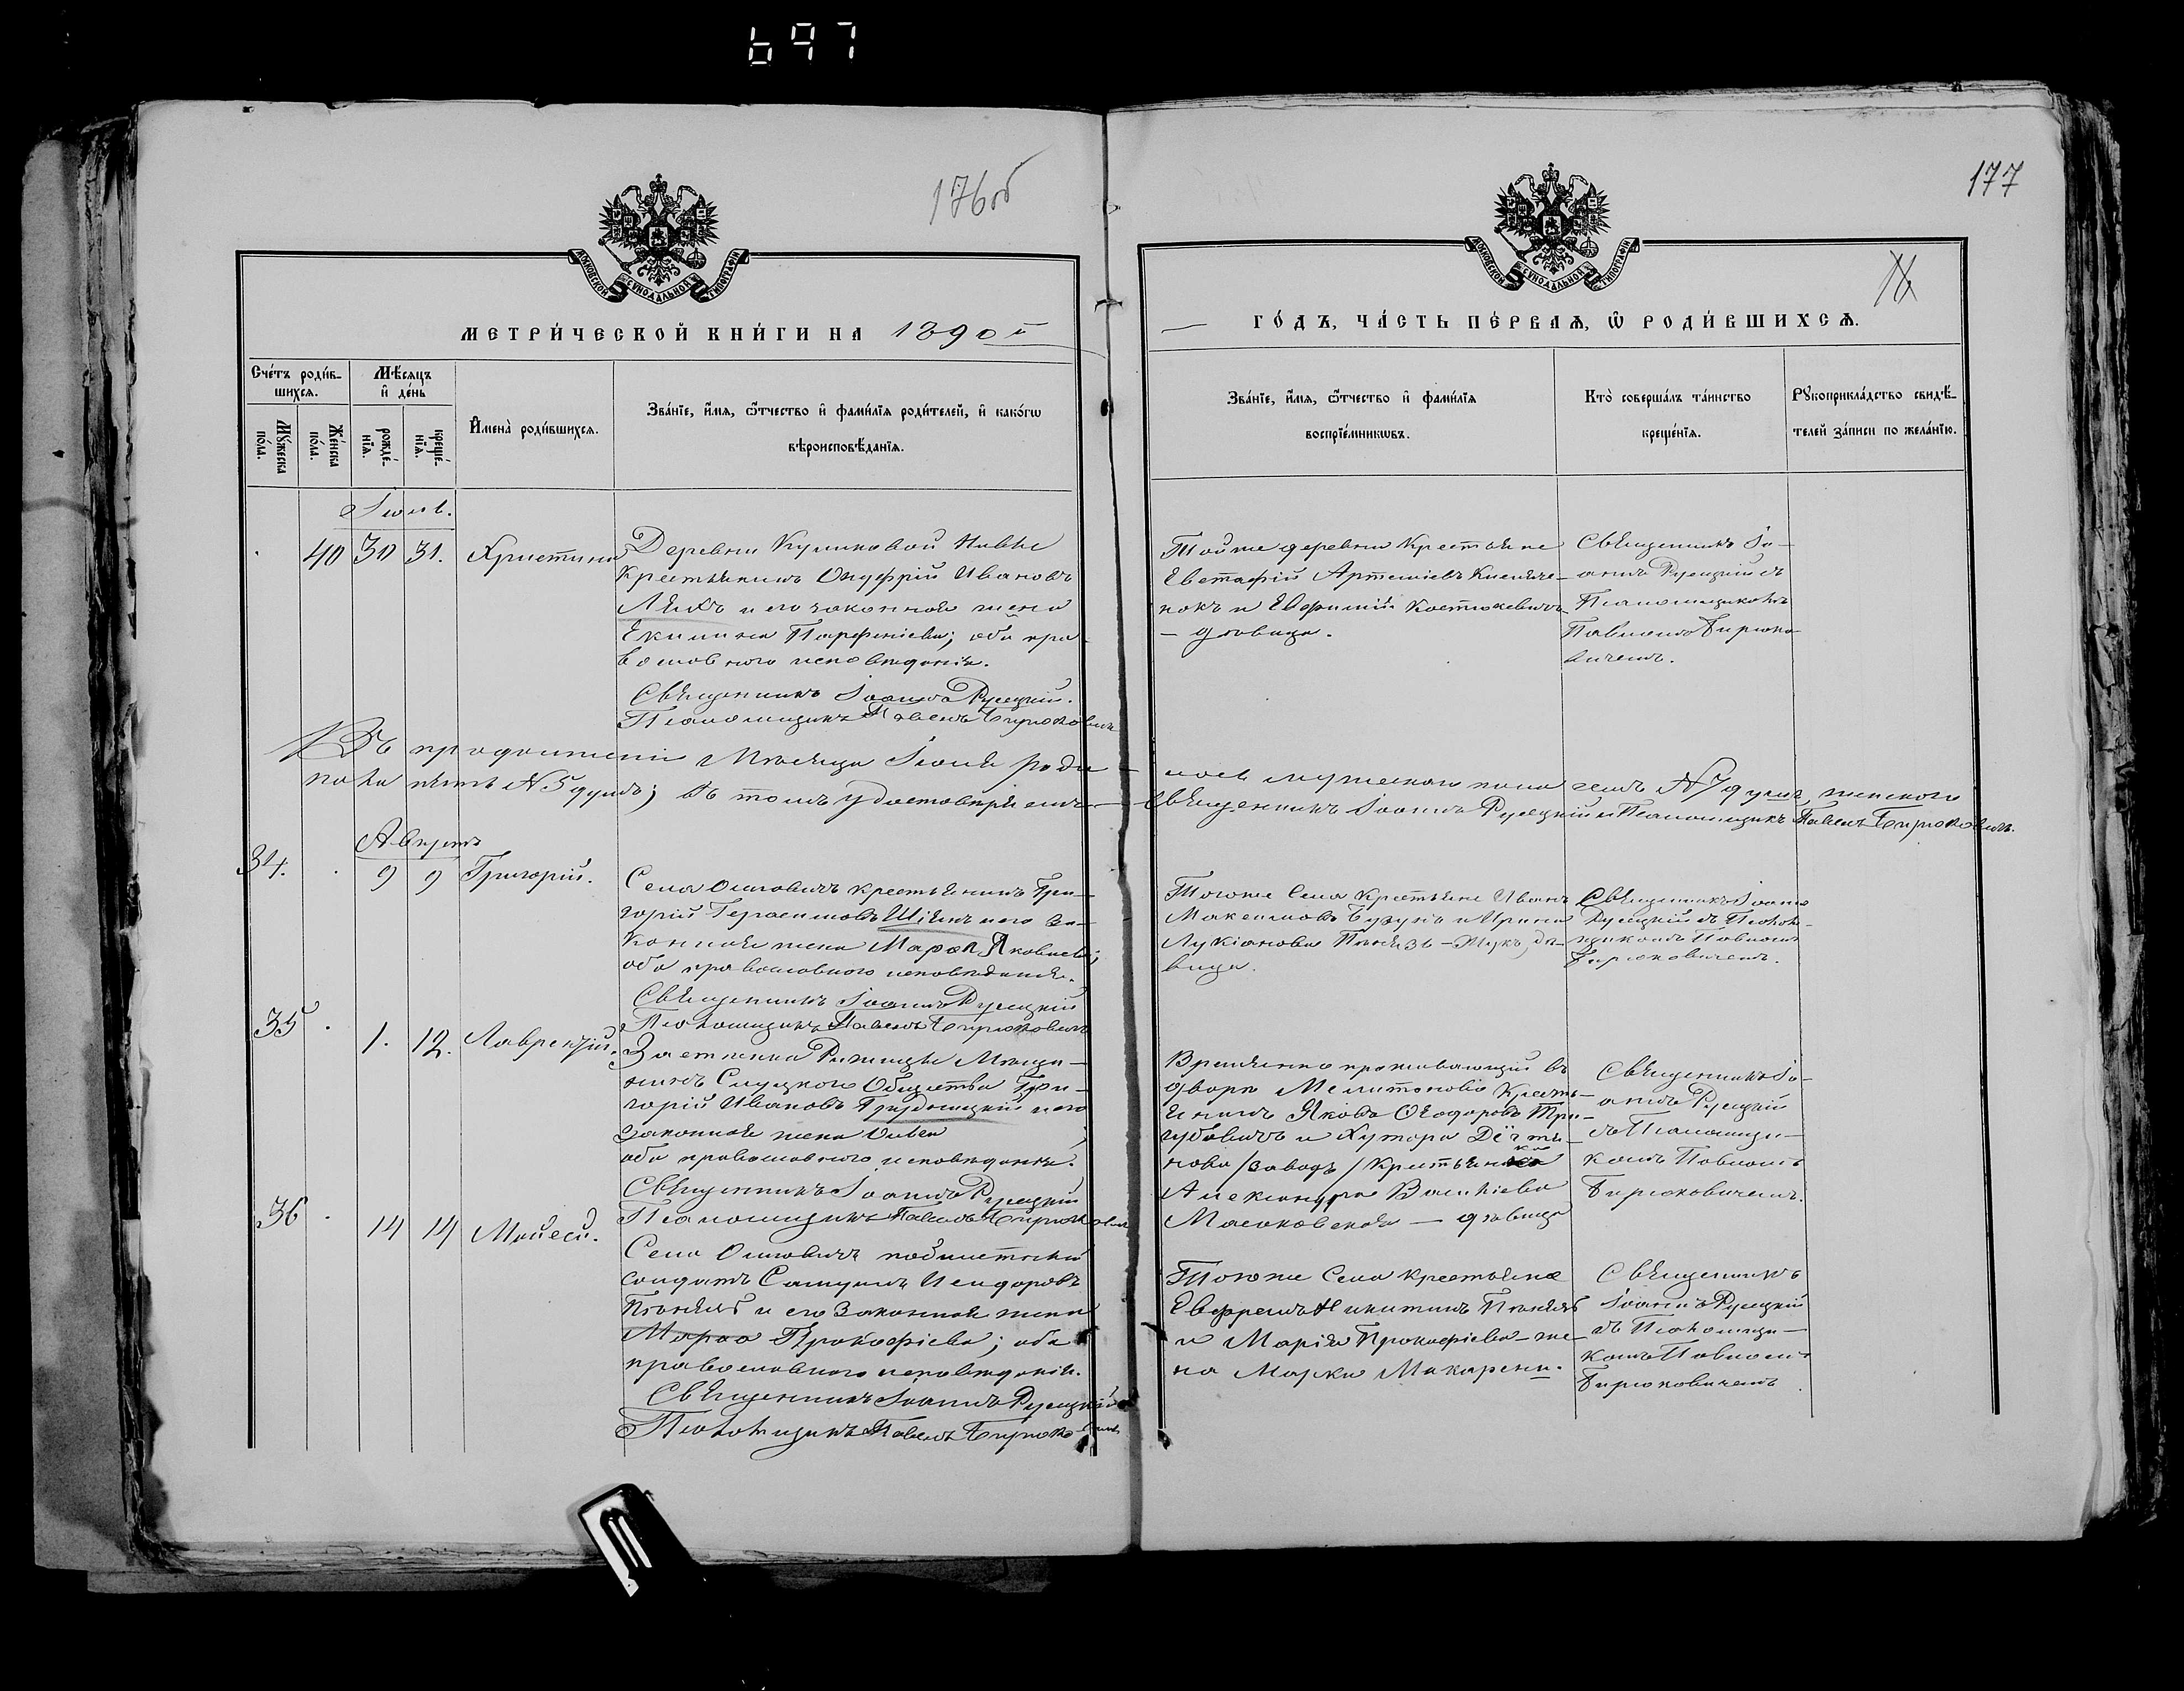 697
176об
177
16
МОСКОВСКОЙ СѴНОДАЛЬНОЙ ТИПОГРАФІИ
МОСКОВСКОЙ СѴНОДАЛЬНОЙ ТИПОГРАФІИ
МЕТРИ́ЧЕСКОЙ КНИ́ГИ НА 1890й
ГО́ДЪ, ЧА́СТЬ ПЕ́РВАѦ, Ѽ РОДИ́ВШИХСѦ.
Сче́тъ роди́в-
шихсѧ.
Мѣ́сѧцъ
и҆ де́нь
Мꙋ́жеска
по́ла.
Же́нска
по́ла.
рожде́-
нїѧ.
креще́-
нїѧ.
И҆мена̀ роди́вшихсѧ.
Зва́нїе, и҆́мѧ, ѻ҆́тчество и҆ фами́лїѧ роди́телей, и҆ како́гѡ
вѣроисповѣ́данїѧ.
Зва́нїе, и҆́мѧ, ѻ҆́тчество и҆ фами́лїѧ
воспрїе́мникѡвъ.
Кто̀ соверша́лъ та́инство
креще́нїѧ.
Рꙋкоприкла́дство свидѣ́-
телей за́писи по жела́нїю.
Іюль.
40 30 31. Христина
Деревни Куликовой Нивы
крестьянинъ Онуфрій Ивановъ
Ляхъ и его законная жена
Екилина Парфеніева; оба пра-
вославного исповѣданія.
Священникъ Іоаннъ Рущкій.
Псаломщикъ Павелъ Бирюковичъ
Тойже деревни крестьяне
Евстафій Артеміевъ
нокъ и Евфимія Костюкевичъ
— дѣвица.
Священникъ Іо-
аннъ съ
Псаломщикомъ
Павломъ Бирюко-
вичемъ.
Въ продолженіи Мѣсяца Іюля роди-
лось мужеского пола семь №7 душъ, женского
пола пять №5 душъ; въ томъ удостовѣряемъ —
Священникъ Іоаннъ и Псаломщикъ Павелъ Бирюковичъ.
Августъ
34. 9 9 Григорій.
Села Олтовичъ крестьянинъ Гри-
горій Герасимовъ и его за-
конная жена Марѳа Яковлева;
оба православного исповѣданія.
Священникъ Іоаннъ
Псаломщикъ Павелъ Бирюковичъ
Тогоже Села крестьяне Иванъ
Максимовъ и Ирина
Лукіанова дѣ-
вица.
Священникъ Іоаннъ
съ Псалом-
щикомъ Павломъ
Бирюковичемъ.
35 1. 12. Лаврентій.
Застѣнка Мѣща-
нинъ Слуцкого Общества Гри-
горій Ивановъ и его
законная жена
оба православного исповѣданія.
Священникъ Іоаннъ
Псаломщикъ Павелъ Бирюковичъ
Временно проживающій въ
дворѣ Мелитоново Кресть-
янинъ Яковъ Ѳеодоровъ
и Хутора
/заводъ/ Крестьянка
Александра Васильева
— дѣвица
Священникъ Іо-
аннъ
съ Псаломщи-
комъ Павломъ
Бирюковичемъ.
36 14 14 Моисей.
Села Олтовичъ побилетный
солдатъ Самуилъ Исидоровъ
и его законная жена
Марѳа Прокофіева; оба
православного исповѣданія.
Священникъ Іоаннъ
Псаломщикъ Павелъ Бирюковичъ
Тогоже Села крестьяне
Ефремъ Никитинъ
и Марія Прокофіева — же-
на Марка Макарени.
Священникъ
Іоаннъ
съ Псаломщи-
комъ Павломъ
Бирюковичемъ